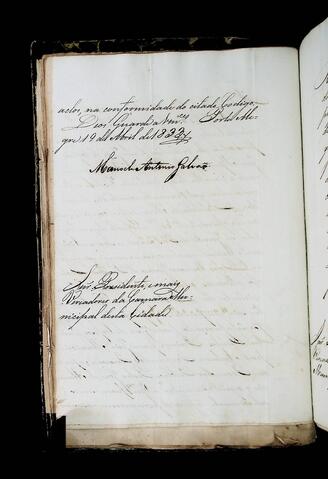 actos, na conformidade do citado Codigo.
Deos Guarde a Vm.ces Porto Ale-
gre 19 de Abril de 1833.
Manoel Antonio Galvão
Snr. Presidente, e mais
Vereadores da Camara Mu-
nicipal desta Cidade